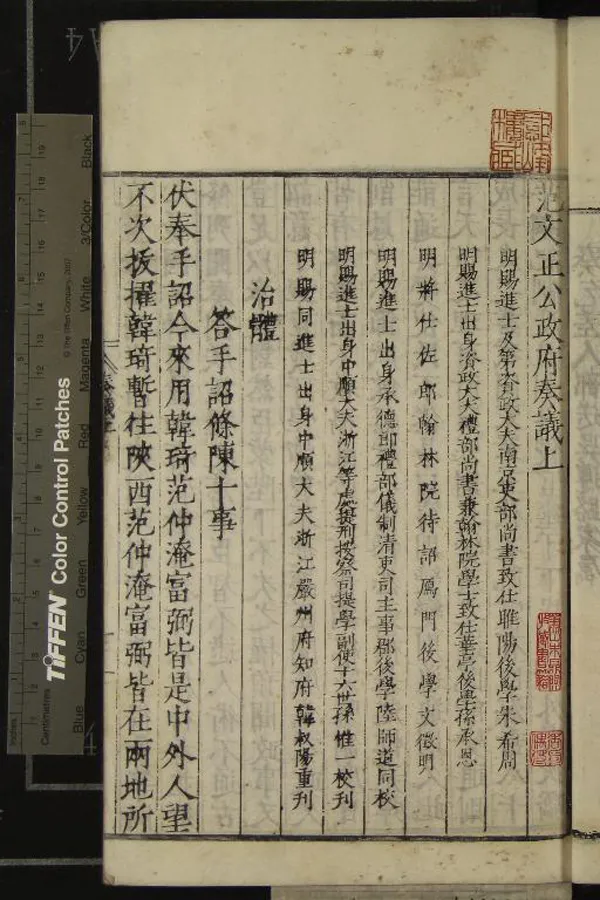 范文正公政府奏議上
明賜進士及第資政大夫南京吏部尚書致仕睢陽後學朱希周
明賜進士出身資政大夫禮部尚書兼翰林院學士致仕葉亭後學孫承恩
明將仕佐郎翰林院待詔厲門後學文徵明
明賜進士出身承德郎禮部儀制清吏司主事郡後學陸師道同校
明賜進士出身中順大夫浙江等處提刑按察司提學副使十六世孫惟一校刊
明賜同進士出身中順大夫浙江嚴州府知府韓叔陽重刊
治體
答手詔條陳十事
伏奉手詔今來用韓琦范仲淹富弼皆是中外人望
不次拔擢韓琦暫往陝西范仲淹富弼皆在兩地所
奏議上
TIFFEN Color Control Patches
© The Tiffen Company, 2007
Inches
Centimetres
Blue
Cyan
Green
Yellow
Red
Magenta
White
3/Color
Black